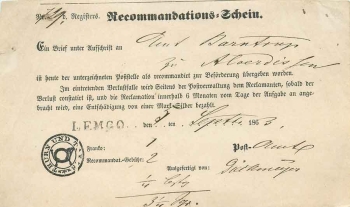 d. Registers. Recommandations-Schein.
Ein Brief unter Aufschrift an Amt Barntrup
zu Alverdissen
ist heute der unterzeichneten Poststelle als recommandirt zur Beförderung übergeben worden.
Im eintretenden Verlustfalle wird Seitens der Postverwaltung dem Reclamanten, sobald der
Verlust constatirt ist, und die Reclamation innerhalb 6 Monaten vom Tage der Aufgabe an ange-
bracht wird, eine Entschädigung von einer Mark Silber bezahlt.
LEMGO den ten Septbr 1863
THURN UND
Franko: 1 Post-Amt
Recommandat.-Gebühr: 2
Ausgefertigt von:
1/4
3 1/4 Sgr.